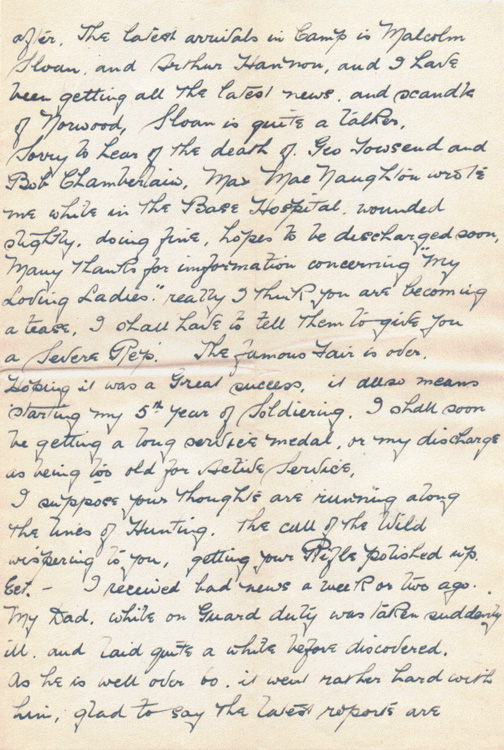 after. The latest arrivals in Camp is Malcolm
Sloan, and Arthur Hannon, and I have
been getting all the latest news. and scandle
of Norwood, Sloan is quite a talker.
Sorry to hear of the death of. Geo Towsend and
Bob Chamberlain, Max MacNaughton wrote
me while in the Base Hospital. wounded
slightly. doing fine, hopes to be discharged soon,
Many thanks for imformation concerning "My
Loving Ladies." really I think you are becoming
a tease, I shall have to tell them to give you
a Severe Rep. The famous Fair is over.
Hoping it was a Great success, it also means
starting my 5th year of Soldiering. I shall soon
be getting a long service medal, or my discharge
as being too old for Active Service,
I suppose your thoughts are running along
the lines of Hunting. the call of the Wild
wispering to you, getting your Rifle polished up.
Ect. - I received bad news a week or two ago.
My Dad. while on Guard duty was taken suddenly
ill. and laid quite a while before discovered.
As he is well over 60. it went rather hard with
him, glad to say the latest reports are